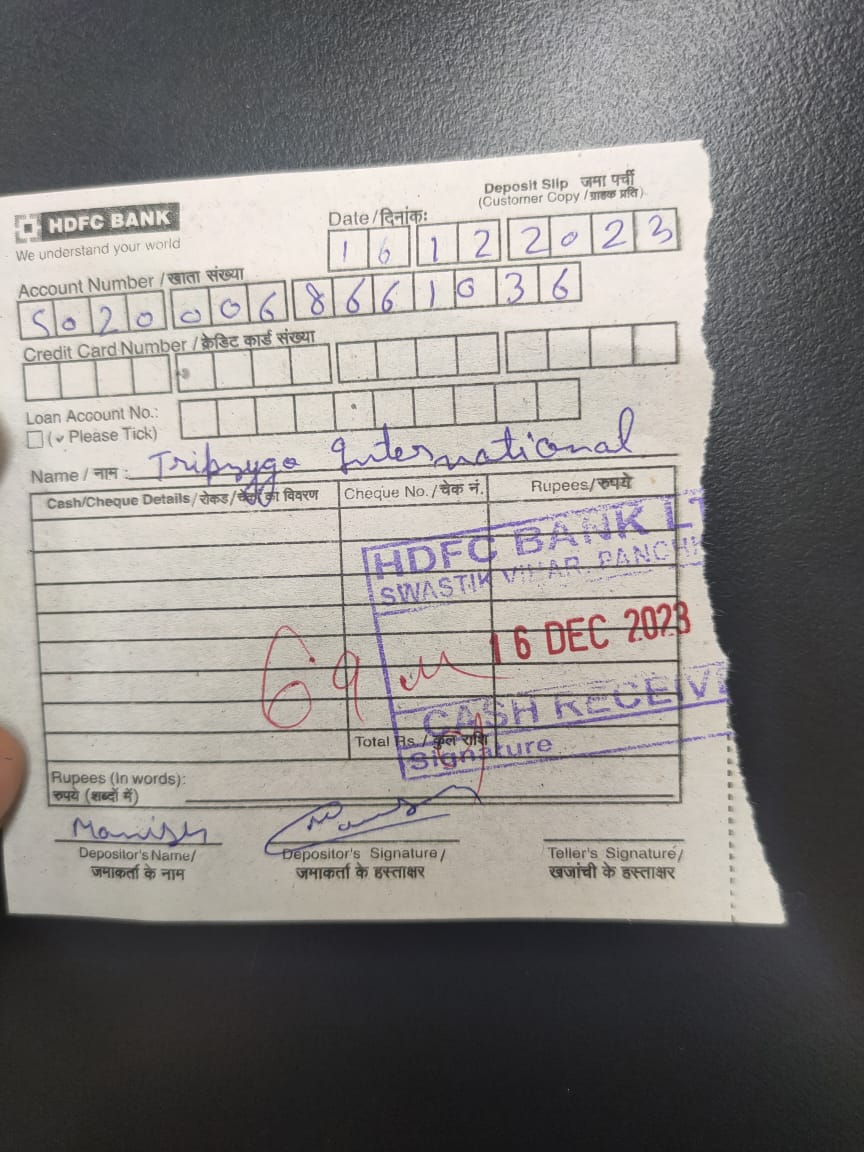 HDFC BANK
We understand your world
Deposit Slip जमा पर्ची
(Customer Copy / ग्राहक प्रति)
Date / दिनांक:
16 12 2023
Account Number / खाता संख्या
50200068661036
Credit Card Number / क्रेडिट कार्ड संख्या
Loan Account No.:
(✔ Please Tick)
Name / नाम : Tripzygo International
Cash/Cheque Details / रोकड़/चेक का विवरण Cheque No. / चेक नं. Rupees / रुपये
HDFC BANK
SWASTIK VIHAR,
16 DEC 2023
69
CASH
Total Rs. / कुल राशि
Signature
Rupees (in words):
रुपये (शब्दों में)
Manish
Depositor's Name/ Depositor's Signature / Teller's Signature /
जमाकर्ता के नाम जमाकर्ता के हस्ताक्षर खजांची के हस्ताक्षर